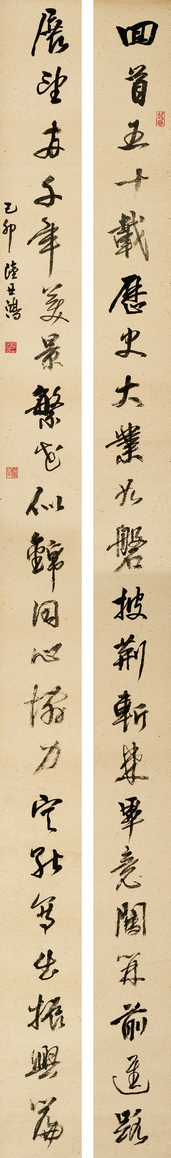 回首五十載歷史大業如磐披荊斬棘畢竟闢开前進路
展望廿千年美景繁花似錦同心協力定能寫出振興篇
己卯 陸